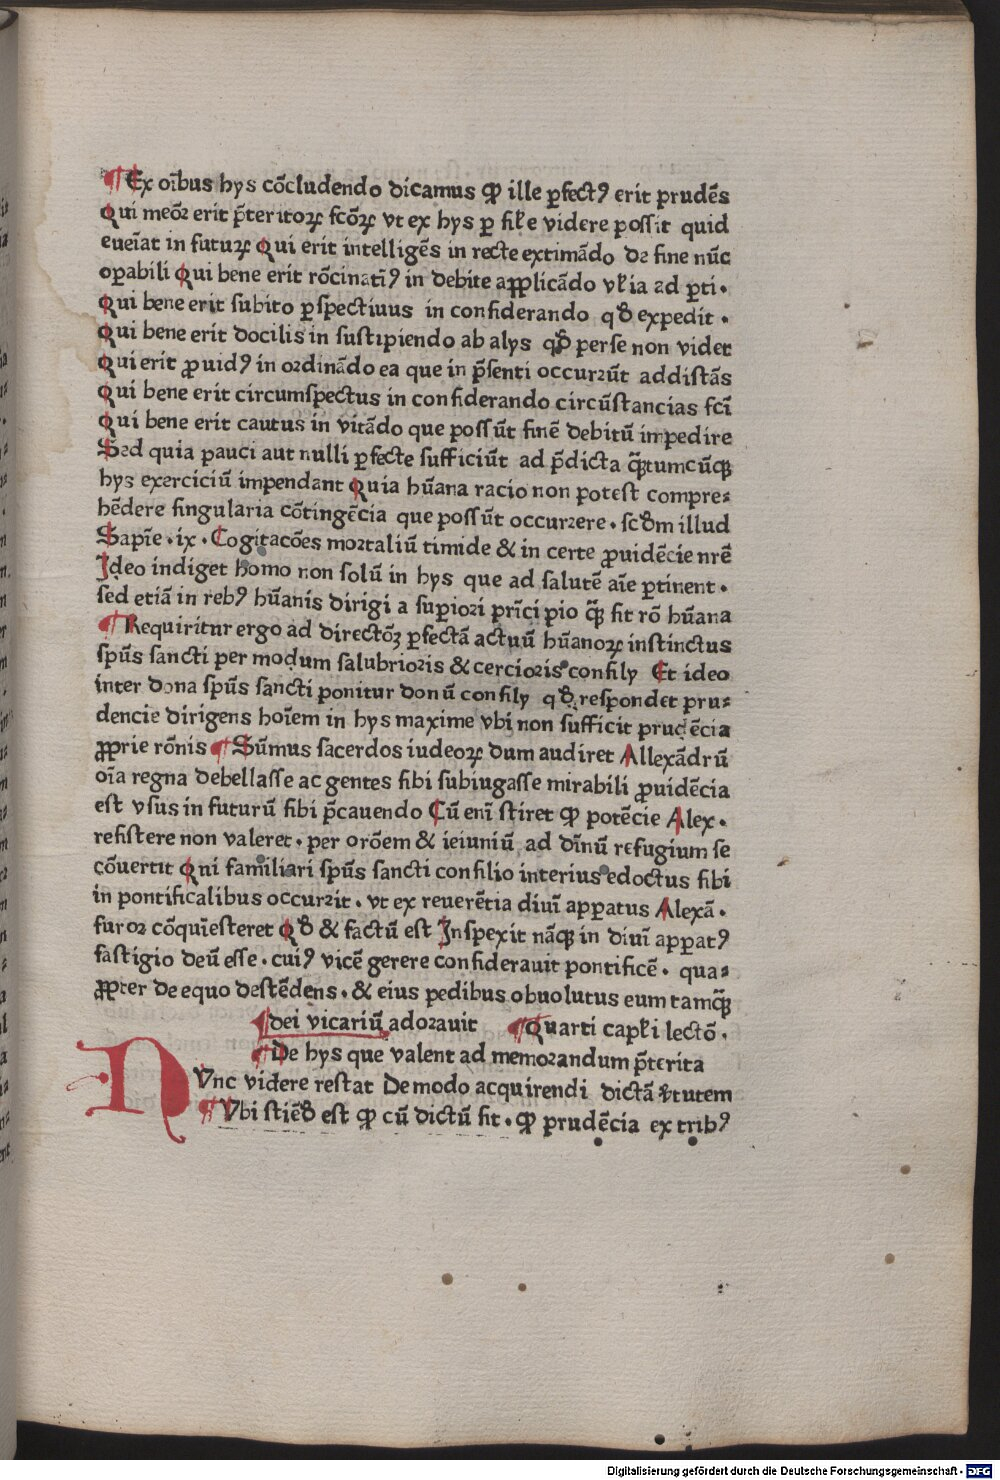 ¶ Ex oĩbus hys cõcludendo dicamus ꝙ ille ꝑfectꝰ erit prudẽs
Qui meõꝝ erit p̃teritoꝝ fcõꝝ vt ex hys ꝑ fil̃e videre possit quid
eueĩat in futuꝝ Qui erit intelligẽs in recte extimãdo de fine nũc
oꝑabili Qui bene erit rõcinatĩꝰ in debite apꝓlicãdo vl̃ia ad ꝑti.
Qui bene erit subito ꝑspectiuus in considerando qđ expedit.
Qui bene erit docilis in sustipiendo ab alys qđ perse non videt
Qui erit ꝓuidꝰ in ordinãdo ea que in p̃senti occurrũt addistãs
Qui bene erit circumspectus in considerando circũstancias fcĩ
Qui bene erit cautus in vitãdo que possũt finẽ debitũ impedire
Sed quia pauci aut nulli ꝑfecte sufficiũt ad p̃dicta q̃tumcũqꝫ
hys exerciciũ impendant Quia hũana racio non potest compre⸗
hẽdere singularia cõtingẽcia que possũt occurrere. scđm illud
Sapiẽ.ix. Cogitacões mortaliũ timide & in certe ꝓuidẽcie nrẽ
Ideo indiget homo non solũ in hys que ad salutẽ aĩe ꝑtinent.
sed etiã in rebꝰ hũanis dirigi a suꝑiori prĩcipio q̃ꝫ sit rõ hũana
¶ Requiritnr ergo ad directõꝫ ꝑfectã actuũ hũanoꝝ instinctus
spũs sancti per modum salubrioris & cercioris consily Et ideo
inter dona spũs sancti ponitur donũ consily qđ respondet pru⸗
dencie dirigens hoĩem in hys maxime vbi non sufficit prudẽcia
ꝓprie rõnis ¶ Sũmus sacerdos iudeoꝝ dum audiret Allexãdrũ
oĩa regna debellasse ac gentes sibi subiugasse mirabili ꝓuidẽcia
est vsus in futurũ sibi p̃cauendo Cũ enĩ stiret ꝙ potẽcie Alex.
resistere non valeret. per orõem & ieiuniũ ad dñnũ refugium se
cõuertit Qni familiari spũs sancti consilio interius edoctus sibi
in pontificalibus occurrit. vt ex reuerẽtia diuĩ apꝑatus Alexã.
furor cõquĩesteret Qđ & factũ est Inspexit nãqꝫ in diuĩ apꝑatꝰ
fastigio deũ esse. cuiꝰ vicẽ gerere considerauit pontificẽ. qua⸗
ꝓpter de equo destẽdens. & eius pedibus obuolutus eum tamq̃ꝫ
dei vicariũ adorauit ¶ Quarti capl̃i lectõ.
¶ De hys que valent ad memorandum p̃terita
NVnc videre restat De modo acquirendi dictã v̾tutem
¶ Vbi stiẽđ est ꝙ cũ dictũ sit. ꝙ prudẽcia ex tribꝰ
Digitalisierung gefördert durch die Deutsche Forschungsgemeinschaft - DFG